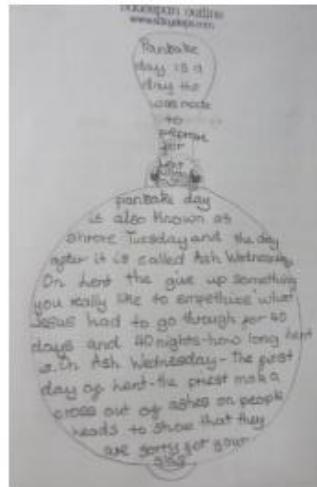 saucepan outline
Pancake
day is a
day the
was made
to
prepare
for
lent
pancake day
is also known as
shrove Tuesday and the day
after it is called Ash Wednesday.
On lent the give up something
you really like to empethise what
Jesus had to go through for 40
days and 40 nights-how long lent
is. On Ash Wednesday-The first
day of lent-the priest mak a
cross out of ashes on people
heads to show that they
are sorry for your